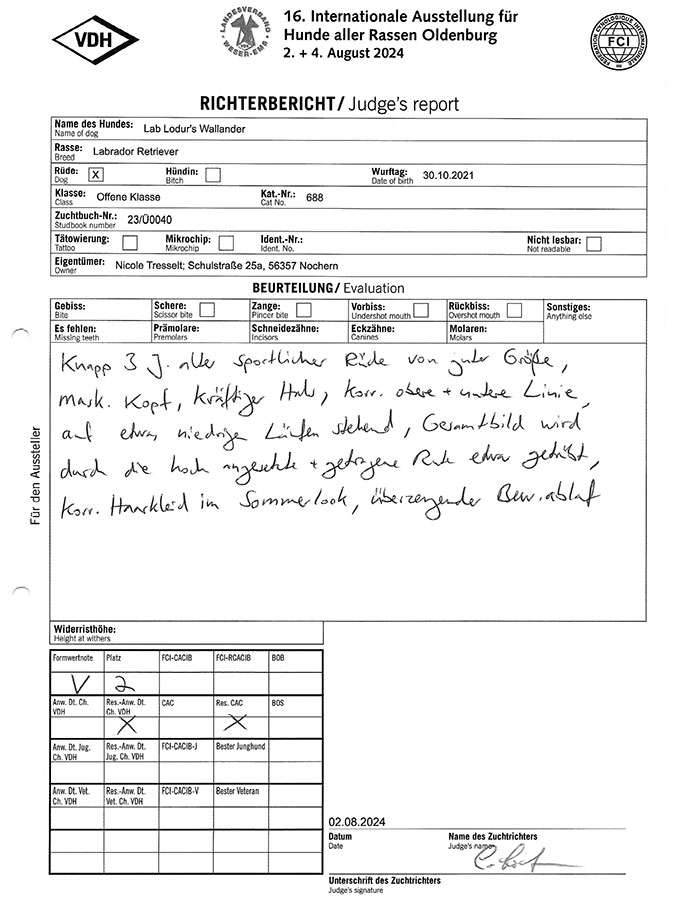 VDH
LANDESVERBAND
WESER-EMS
16. Internationale Ausstellung für
Hunde aller Rassen Oldenburg
2. + 4. August 2024
FEDERATION CYNOLOGIQUE INTERNATIONALE
FCI
RICHTERBERICHT/ Judge's report
Name des Hundes: Lab Lodur's Wallander
Name of dog
Rasse: Labrador Retriever
Breed
Rüde: X Hündin: Wurftag: 30.10.2021
Dog Bitch Date of birth
Klasse: Offene Klasse Kat.-Nr.: 688
Class Cat No.
Zuchtbuch-Nr.: 23/Ü0040
Studbook number
Tätowierung: Mikrochip: Ident.-Nr.: Nicht lesbar:
Tattoo Mikrochip Ident. No. Not readable
Eigentümer: Nicole Tresselt; Schulstraße 25a, 56357 Nochern
Owner
BEURTEILUNG/ Evaluation
Gebiss: Schere: Zange: Vorbiss: Rückbiss: Sonstiges:
Bite Scissor bite Pincer bite Undershot mouth Overshot mouth Anything else
Es fehlen: Prämolare: Schneidezähne: Eckzähne: Molaren:
Missing teeth Premolars Incisors Canines Molars
Knapp 3 J. alter sportlicher Rüde von guter Größe,
mask. Kopf, kräftiger Hals, korr. obere + untere Linie,
auf etwas niedrigen Läufen stehend, Gesamtbild wird
durch die hoch angesetzte + getragene Rute etwas getrübt,
korr. Haarkleid im Sommerlook, überzeugender Bew.ablauf
Für den Aussteller
Widerristhöhe:
Height at withers
Formwertnote Platz FCI-CACIB FCI-RCACIB BOB
V 2
Anw. Dt. Ch. Res.-Anw. Dt. CAC Res. CAC BOS
VDH Ch. VDH
X X
Anw. Dt. Jug. Res.-Anw. Dt. FCI-CACIB-J Bester Junghund
Ch. VDH Jug. Ch. VDH
Anw. Dt. Vet. Res.-Anw. Dt. FCI-CACIB-V Bester Veteran
Ch. VDH Vet. Ch. VDH
02.08.2024
Datum Name des Zuchtrichters
Date Judge's name
Unterschrift des Zuchtrichters
Judge's signature